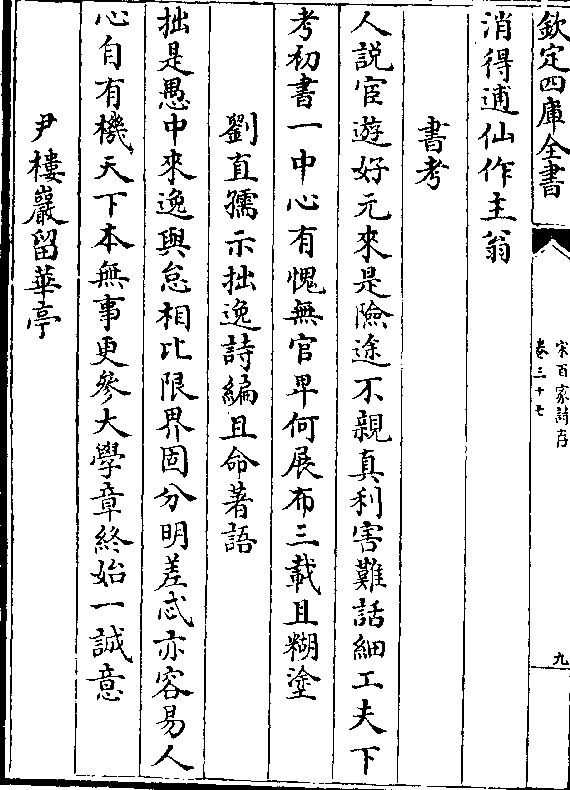 欽定四庫全書
宋百家詩存
卷三十七
九
消得逋仙作主翁
書考
人説宦遊好元來是險途不親真利害難話細工夫下
考初書一中心有愧無官卑何展布三載且糊塗
劉直孺示拙逸詩編且命著語
拙是愚中來逸與怠相比限界固分明差忒亦容易人
心自有機天下本無事更參大學章終始一誠意
尹樓巖留華亭